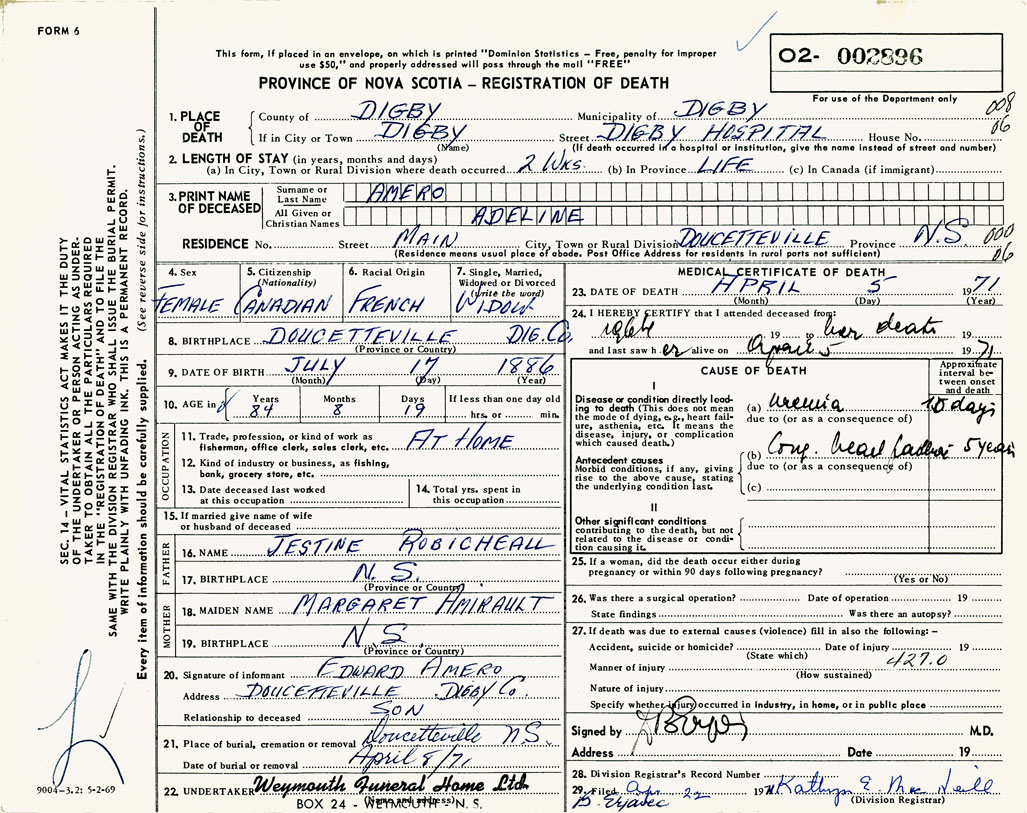 FORM 6
This form, if placed in an envelope, on which is printed "Dominion Statistics – Free, penalty for improper
use $50," and properly addressed will pass through the mail "FREE"
O2- 002896
PROVINCE OF NOVA SCOTIA – REGISTRATION OF DEATH
For use of the Department only
008
06
1. PLACE OF DEATH
County of DIGBY Municipality of DIGBY
If in City or Town DIGBY Street DIGBY HOSPITAL House No.
(Name) (If death occurred in a hospital or institution, give the name instead of street and number)
2. LENGTH OF STAY (in years, months and days)
(a) In City, Town or Rural Division where death occurred 2 WKS. (b) In Province LIFE (c) In Canada (if immigrant)
3. PRINT NAME OF DECEASED
Surname or Last Name AMERO
All Given or Christian Names ADELINE
RESIDENCE No. Street MAIN City, Town or Rural Division DOUCETTEVILLE Province N.S
(Residence means usual place of abode. Post Office Address for residents in rural parts not sufficient)
000
06
4. Sex
FEMALE
5. Citizenship
(Nationality)
CANADIAN
6. Racial Origin
FRENCH
7. Single, Married,
Widowed or Divorced
(Write the word)
WIDOW
8. BIRTHPLACE DOUCETTEVILLE DIG. Co.
(Province or Country)
9. DATE OF BIRTH JULY 17 1886
(Month) (Day) (Year)
10. AGE in Years Months Days If less than one day old
84 8 19 hrs. or min.
OCCUPATION
11. Trade, profession, or kind of work as
fisherman, office clerk, sales clerk, etc. AT HOME
12. Kind of industry or business, as fishing,
bank, grocery store, etc.
13. Date deceased last worked
at this occupation
14. Total yrs. spent in
this occupation
15. If married give name of wife
or husband of deceased
FATHER
16. NAME JESTINE ROBICHEAU
17. BIRTHPLACE N. S.
(Province or Country)
MOTHER
18. MAIDEN NAME MARGARET AMIRAULT
19. BIRTHPLACE N S
(Province or Country)
20. Signature of informant EDWARD AMERO
Address DOUCETTEVILLE DIGBY Co.
Relationship to deceased SON
21. Place of burial, cremation or removal Doucetteville NS.
Date of burial or removal April 8/71
22. UNDERTAKER Weymouth Funeral Home Ltd.
(Name and address)
BOX 24 - WEYMOUTH - N. S.
MEDICAL CERTIFICATE OF DEATH
23. DATE OF DEATH APRIL 5 1971
(Month) (Day) (Year)
24. I HEREBY CERTIFY that I attended deceased from:
1964 19 to her death 19
and last saw her alive on April 5 1971
CAUSE OF DEATH
Approximate
interval be-
tween onset
and death
I
Disease or condition directly lead-
ing to death (This does not mean
the mode of dying, e.g., heart fail-
ure, asthenia, etc. It means the
disease, injury, or complication
which caused death.)
(a) Uremia 10 days
due to (or as a consequence of)
Antecedent causes
Morbid conditions, if any, giving
rise to the above cause, stating
the underlying condition last.
(b) Cong. heart failure 5 years
due to (or as a consequence of)
(c)
II
Other significant conditions
contributing to the death, but not
related to the disease or condi-
tion causing it.
25. If a woman, did the death occur either during
pregnancy or within 90 days following pregnancy?
(Yes or No)
26. Was there a surgical operation? Date of operation 19
State findings Was there an autopsy?
27. If death was due to external causes (violence) fill in also the following: –
Accident, suicide or homicide? Date of injury 19
(State which)
427.0
Manner of injury
(How sustained)
Nature of injury
Specify whether injury occurred in industry, in home, or in public place
Signed by M.D.
Address Date 19
28. Division Registrar's Record Number
29. Filed Apr 22 1971 Kathryn E. Mac Neill
(Division Registrar)
SEC. 14 – VITAL STATISTICS ACT MAKES IT THE DUTY
OF THE UNDERTAKER OR PERSON ACTING AS UNDER-
TAKER TO OBTAIN ALL THE PARTICULARS REQUIRED
IN THE "REGISTRATION OF DEATH" AND TO FILE THE
SAME WITH THE DIVISION REGISTRAR WHO SHALL ISSUE THE BURIAL PERMIT.
WRITE PLAINLY WITH UNFADING INK. THIS IS A PERMANENT RECORD.
Every item of information should be carefully supplied. (See reverse side for instructions.)
9004-3.2: 5-2-69